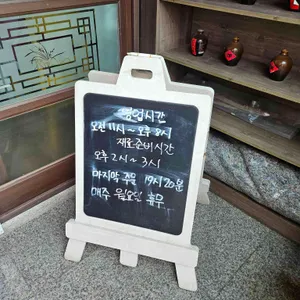 영업시간
오전 11시 ~ 오후 8시
재료준비시간
오후 2시 ~ 3시
마지막 주문 19시 20분
매주 월요일 휴무